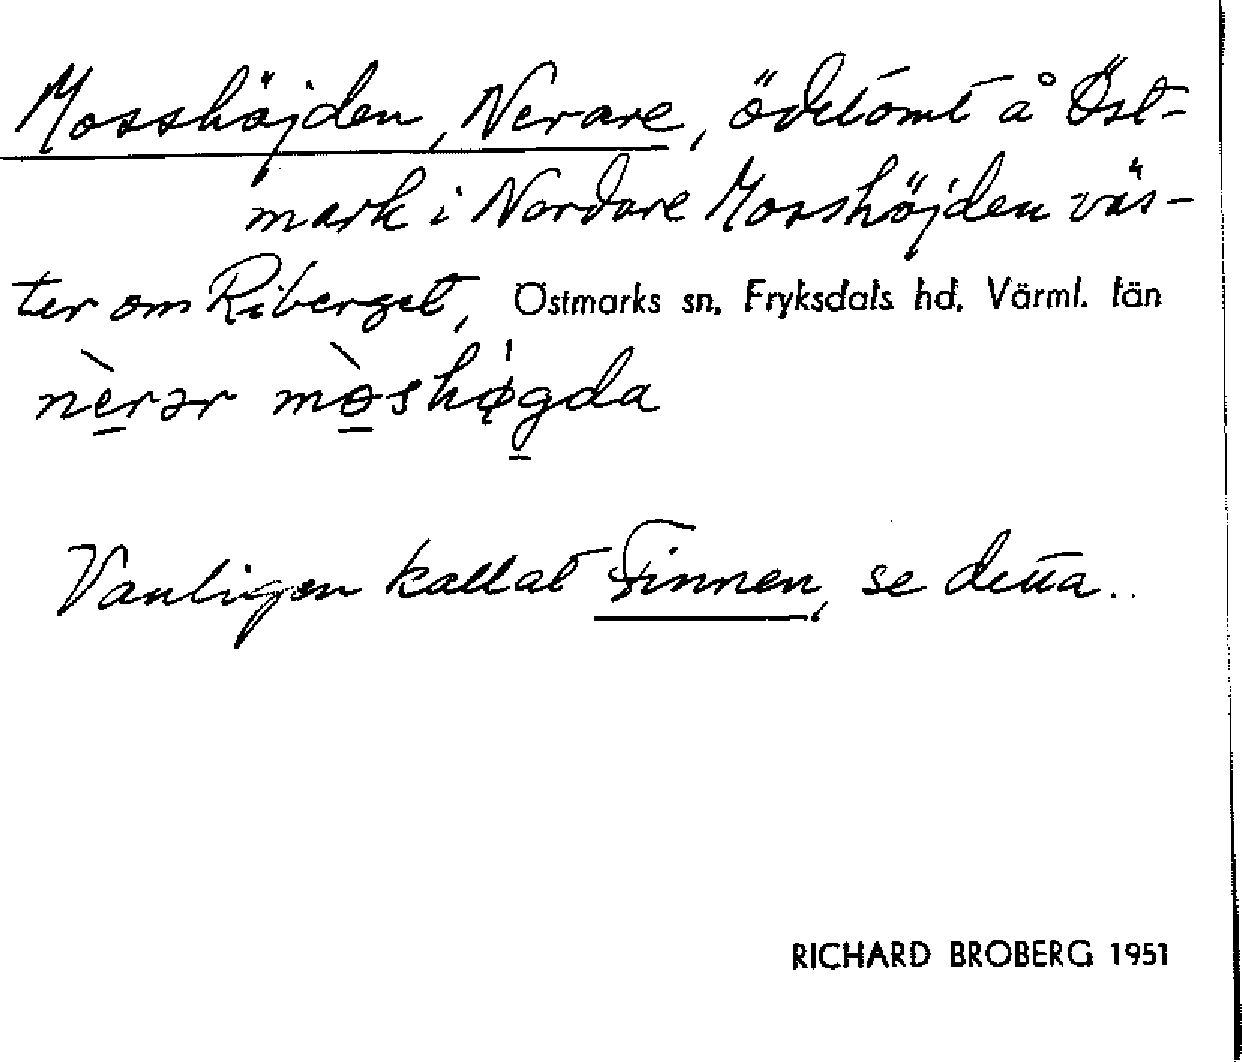 Mosshöjden, Nerare, ödetomt å Öst-
mark i Nordare Mosshöjden väs-
ter om Riberget, Östmarks sn, Fryksdals hd. Värml. län
nèrər mòshø̀gda
Vanligen kallat Finnen, se detta..
RICHARD BROBERG 1951